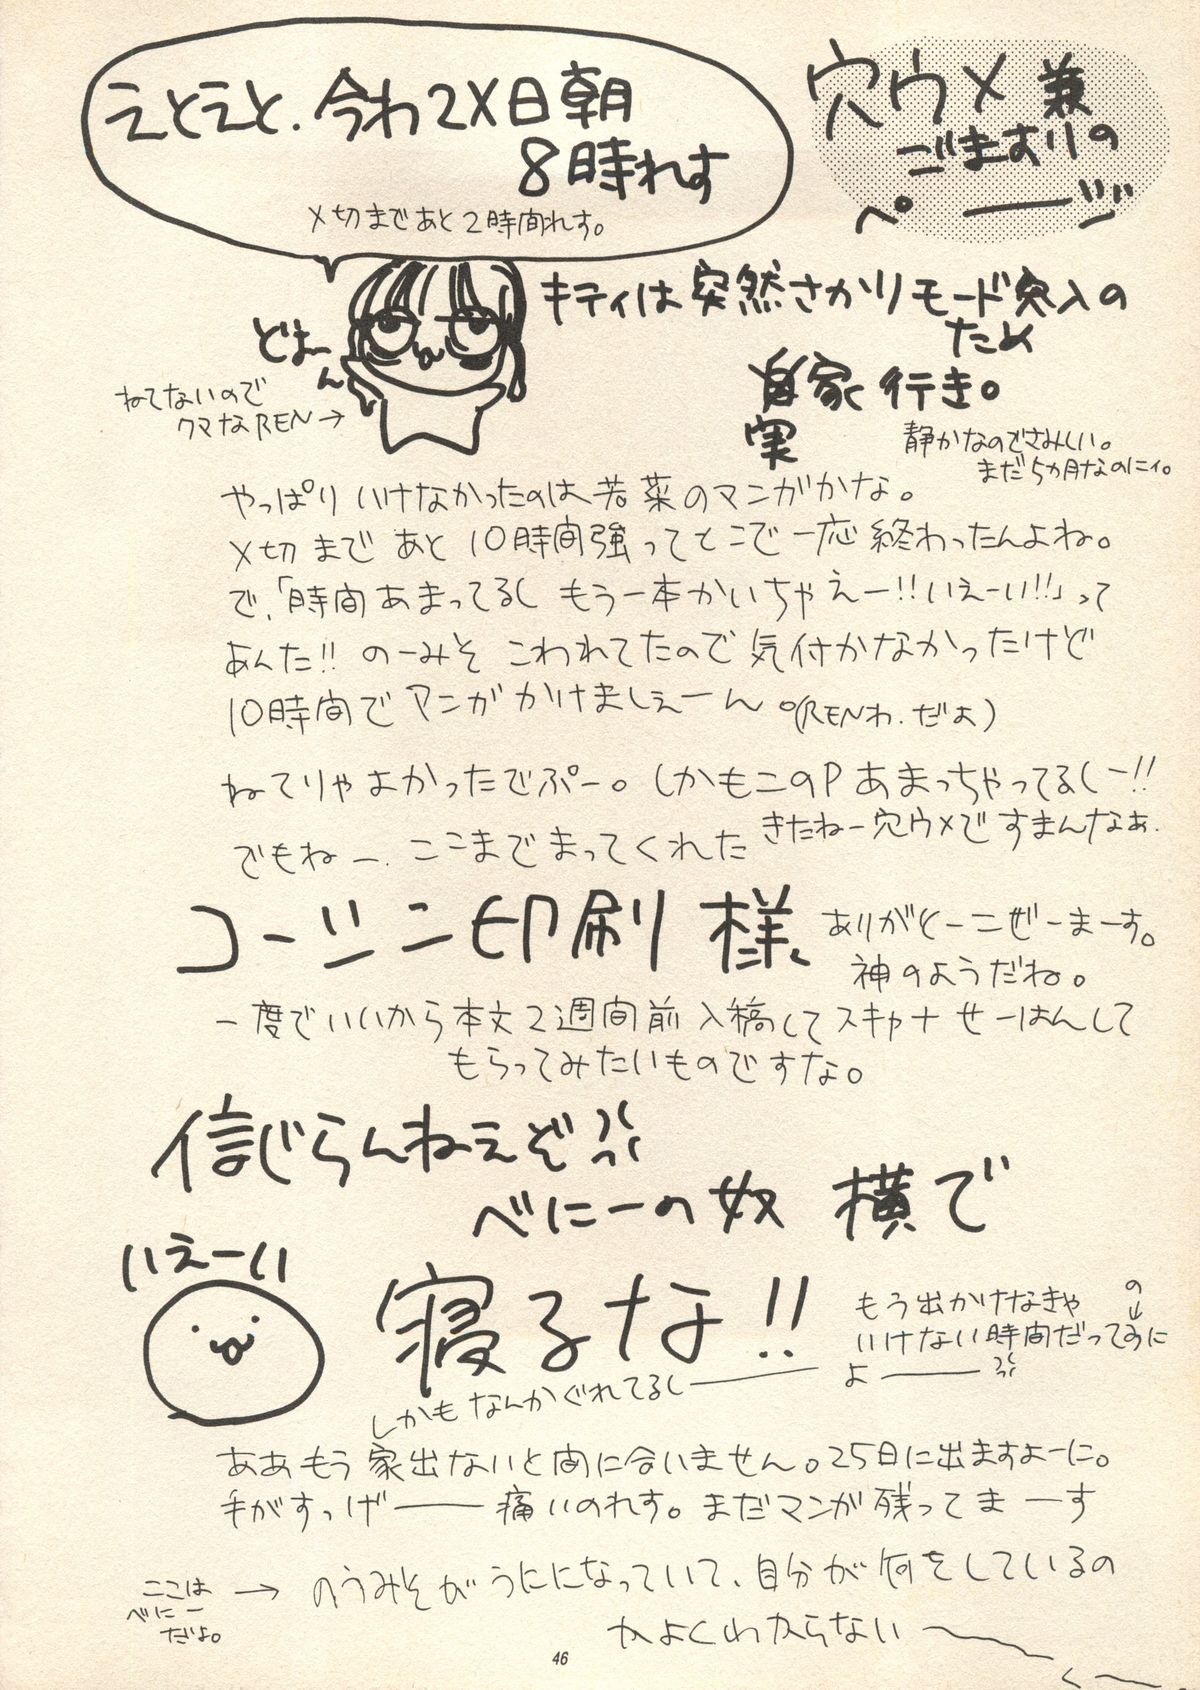 穴ウメ兼
ごますりの
ペーージ
えとえと、今わ2X日朝
8時れす
〆切まであと2時間れす。
どよーん
ねてないので
クマなREN→
キティは突然さかりモード突入の
ため
実家行き。
静かなのでさみしい。
まだ5ヵ月なのにィ。
やっぱりいけなかったのは若菜のマンガかな。
〆切まであと10時間強ってとこで一応終わったんよね。
で、「時間あまってるし もう一本かいちゃえー!!いえーい!!」って
あんた!!のーみそこわれてたので気付かなかったけど
10時間でマンガかけましぇーん。(RENわ.だよ)
ねてりゃよかったでぷー。しかもこのPあまっちゃってるしー!!
きたねー穴ウメですまんなぁ.
でもねー.ここまでまってくれた
コーシン印刷様、
ありがとーごぜーまーす。
神のようだね。
一度でいいから本文2週間前入稿してスキャナせーはんして
もらってみたいものですな。
信じらんねえぞ
べにーの奴 横で
寝るな!!
いえーい
もう出かけなきゃ
いけない時間だってのに
よーー
しかもなんかぐれてるしーー
ああもう家出ないと間に合いません。25日に出ますよーに。
手がすっげーー痛いのれす。まだマンガ残ってまーす
ここは
べにー
だよ。
→ のうみそがうにになっていて、自分が何をしているの
かよくわからない〜〜
46